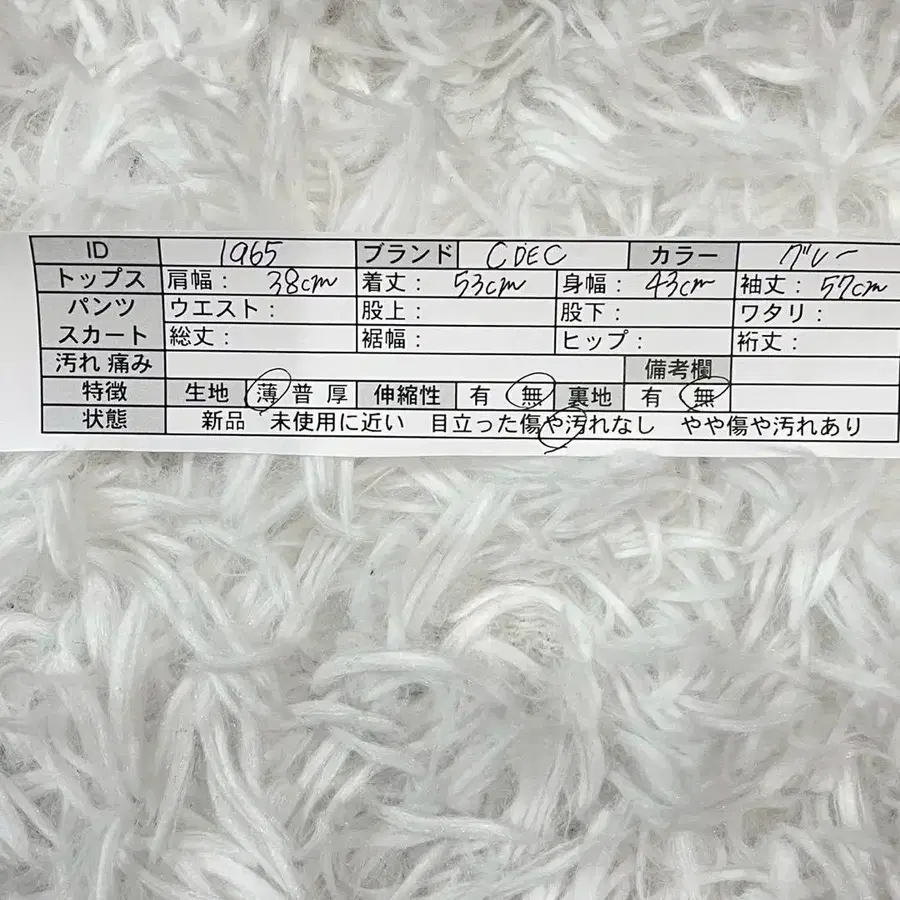 ID 1965 ブランド CDEC カラー グレー
トップス 肩幅： 38cm 着丈： 53cm 身幅： 43cm 袖丈： 57cm
パンツ ウエスト： 股上： 股下： ワタリ：
スカート 総丈： 裾幅： ヒップ： 裄丈：
汚れ 痛み 備考欄
特徴 生地 薄 普 厚 伸縮性 有 無 裏地 有 無
状態 新品 未使用に近い 目立った傷や汚れなし やや傷や汚れあり